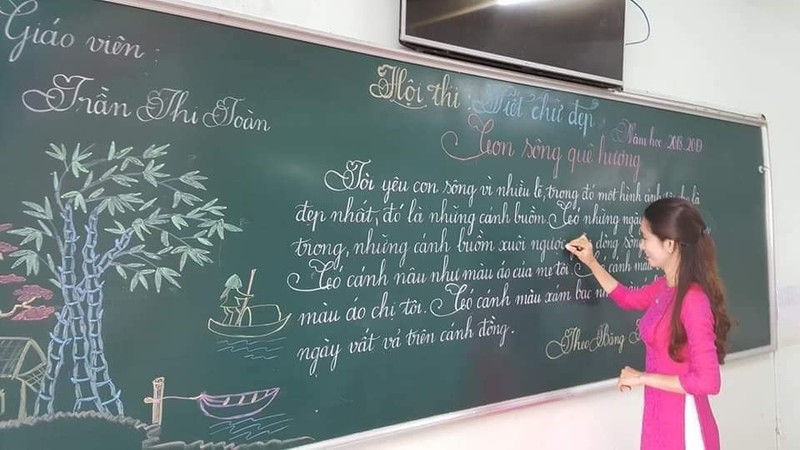 Giáo viên :
Trần Thi Toàn
Hội thi : Viết chữ đẹp
Năm học 2018_2019
Con sông quê hương
Tôi yêu con sông vì nhiều lẽ, trong đó một hình ảnh
đẹp nhất, đó là những cánh buồm. Có những ngày
trong, những cánh buồm xuôi ngược dòng sông
Có cánh nâu như màu áo của mẹ tôi. Có cánh màu
màu áo chị tôi. Có cánh màu xám bạc
ngày vất vả trên cánh đồng.
Theo Băng